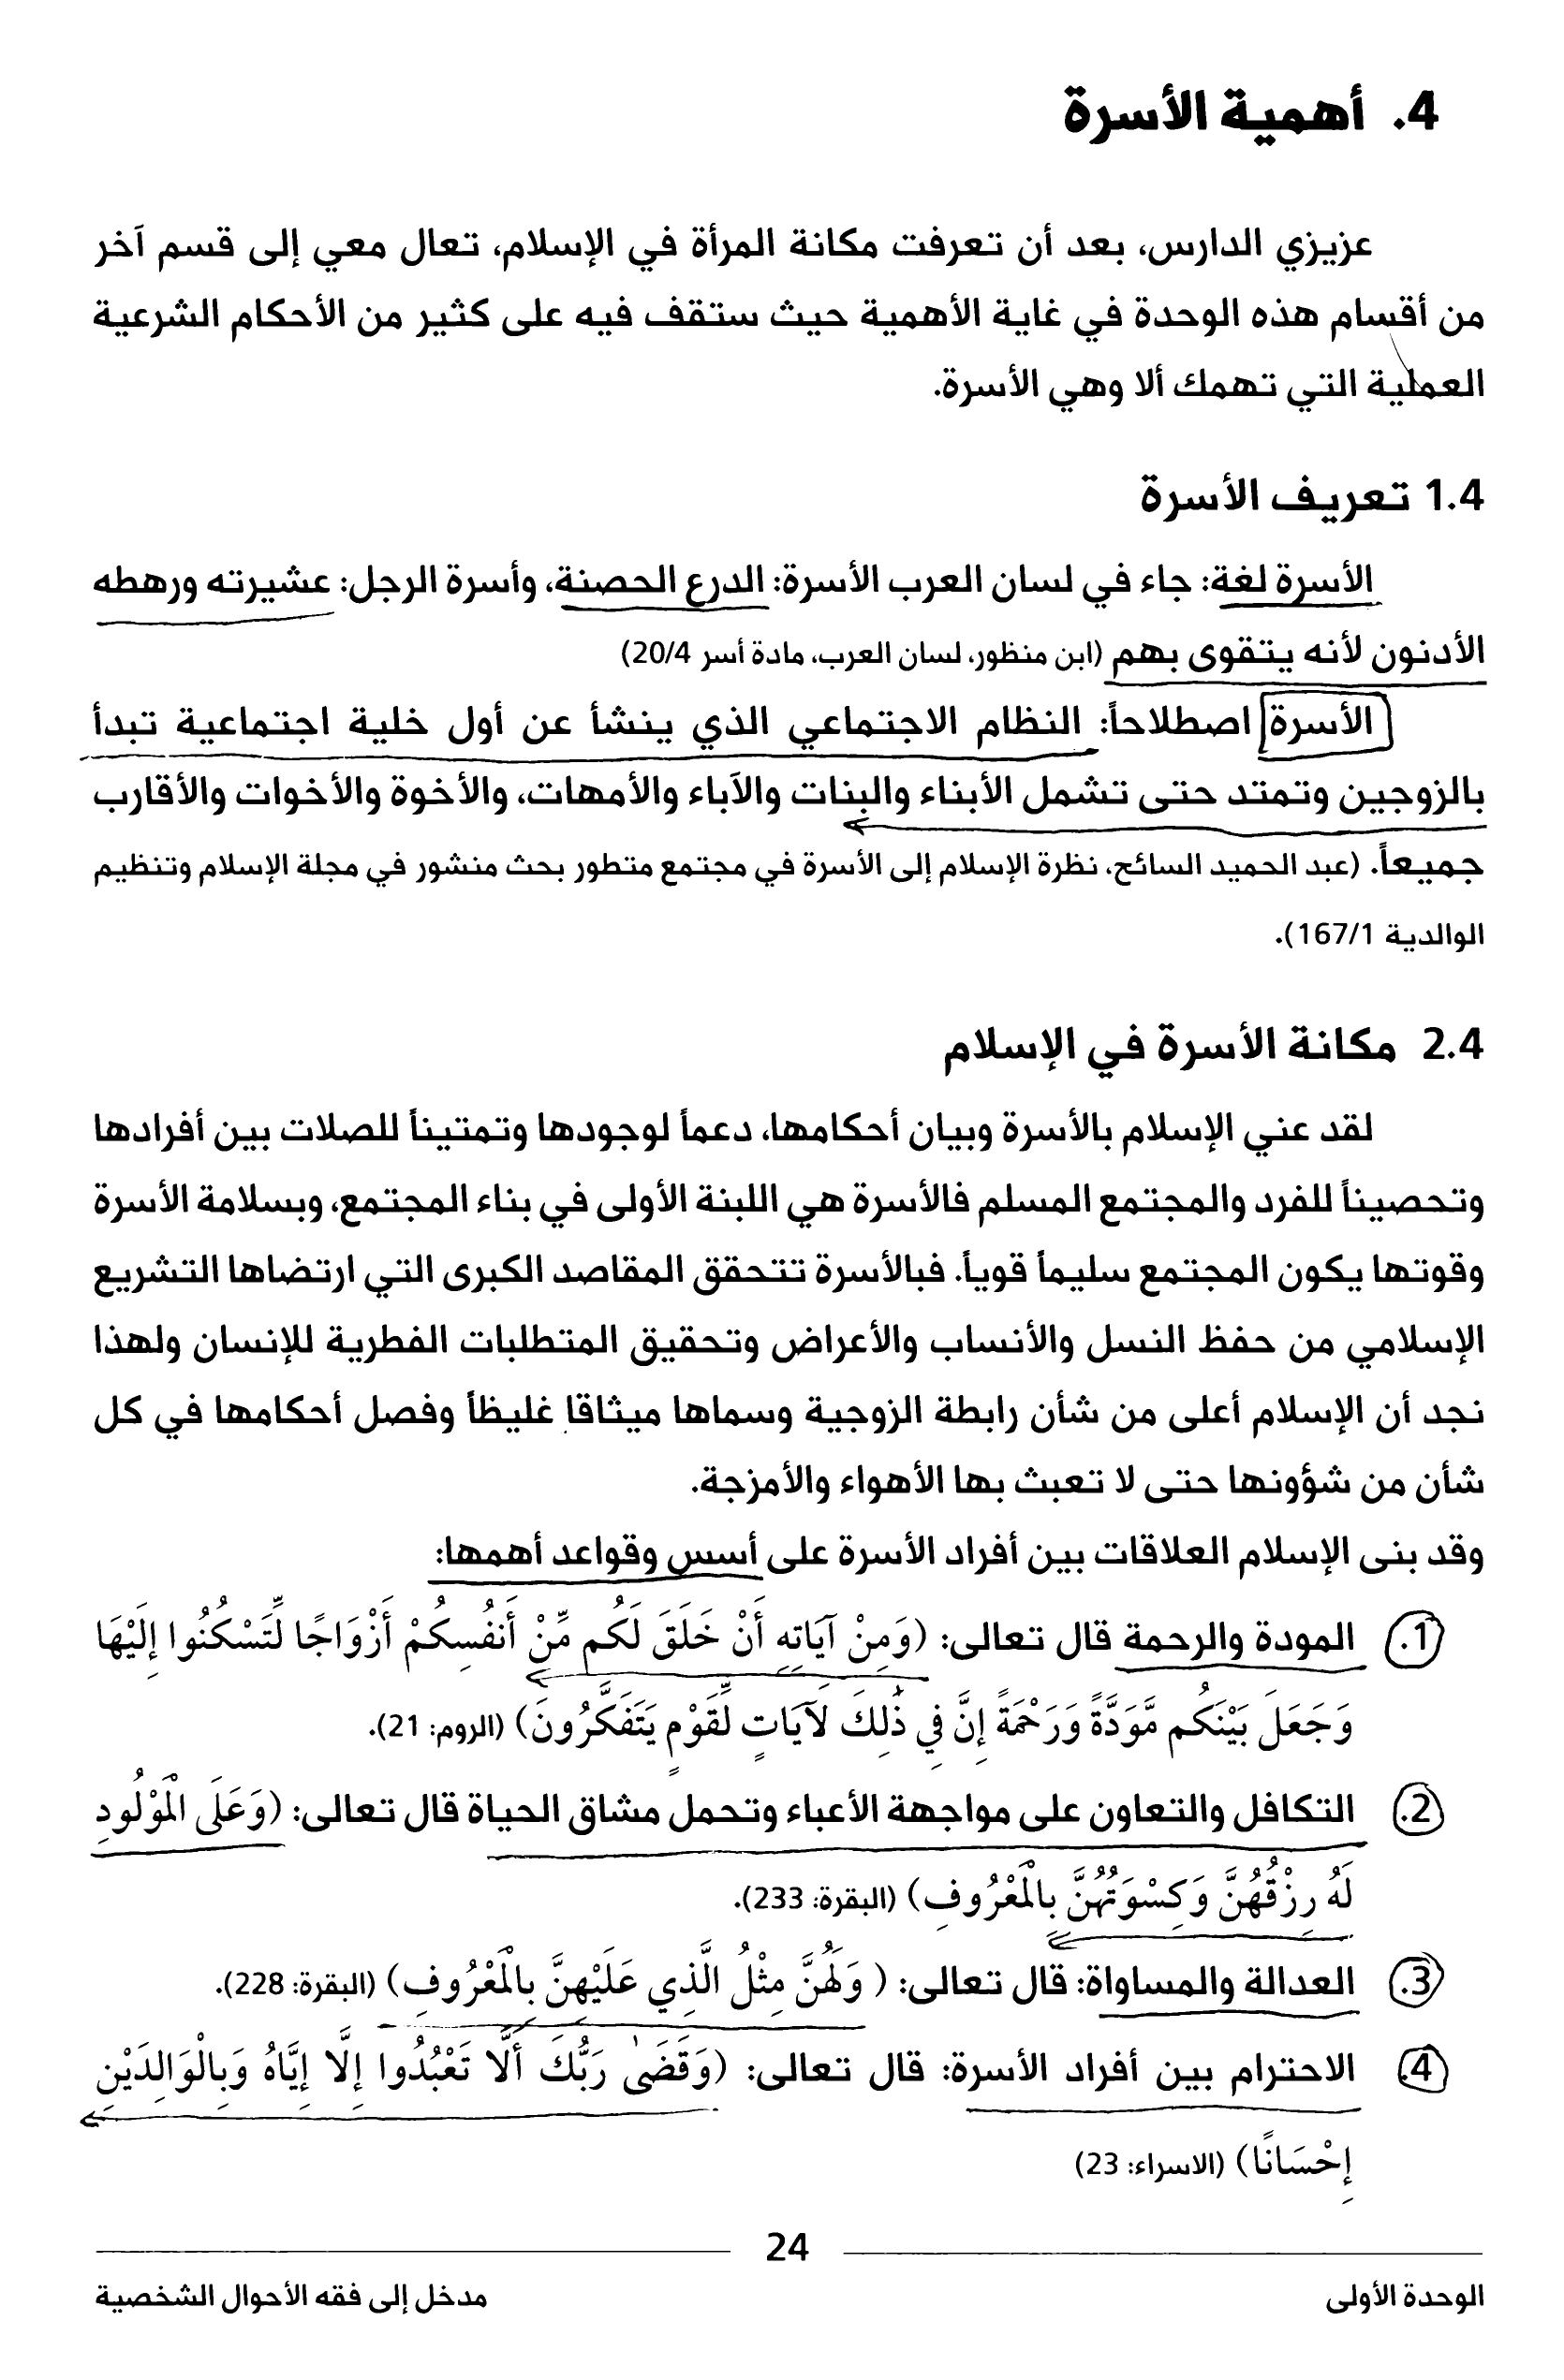 4. أهمية الأسرة
عزيزي الدارس، بعد أن تعرفت مكانة المرأة في الإسلام، تعال معي إلى قسم آخر
من أقسام هذه الوحدة في غاية الأهمية حيث ستقف فيه على كثير من الأحكام الشرعية
العملية التي تهمك ألا وهي الأسرة.
1.4 تعريف الأسرة
الأسرة لغة: جاء في لسان العرب الأسرة: الدرع الحصنة، وأسرة الرجل: عشيرته ورهطه
الأدنون لأنه يتقوى بهم (ابن منظور، لسان العرب، مادة أسر 20/4)
الأسرة اصطلاحاً: النظام الاجتماعي الذي ينشأ عن أول خلية اجتماعية تبدأ
بالزوجين وتمتد حتى تشمل الأبناء والبنات والآباء والأمهات، والأخوة والأخوات والأقارب
جميعاً. (عبد الحميد السائح، نظرة الإسلام إلى الأسرة في مجتمع متطور بحث منشور في مجلة الإسلام وتنظيم
الوالدية 167/1).
2.4 مكانة الأسرة في الإسلام
لقد عني الإسلام بالأسرة وبيان أحكامها، دعماً لوجودها وتمتيناً للصلات بين أفرادها
وتحصيناً للفرد والمجتمع المسلم فالأسرة هي اللبنة الأولى في بناء المجتمع، وبسلامة الأسرة
وقوتها يكون المجتمع سليماً قوياً. فبالأسرة تتحقق المقاصد الكبرى التي ارتضاها التشريع
الإسلامي من حفظ النسل والأنساب والأعراض وتحقيق المتطلبات الفطرية للإنسان ولهذا
نجد أن الإسلام أعلى من شأن رابطة الزوجية وسماها ميثاقا غليظاً وفصل أحكامها في كل
شأن من شؤونها حتى لا تعبث بها الأهواء والأمزجة.
وقد بنى الإسلام العلاقات بين أفراد الأسرة على أسس وقواعد أهمها:
1. المودة والرحمة قال تعالى: (وَمِنْ آيَاتِهِ أَنْ خَلَقَ لَكُم مِّنْ أَنفُسِكُمْ أَزْوَاجًا لِّتَسْكُنُوا إِلَيْهَا
وَجَعَلَ بَيْنَكُم مَّوَدَّةً وَرَحْمَةً إِنَّ فِي ذَٰلِكَ لَآيَاتٍ لِّقَوْمٍ يَتَفَكَّرُونَ) (الروم: 21).
2. التكافل والتعاون على مواجهة الأعباء وتحمل مشاق الحياة قال تعالى: (وَعَلَى الْمَوْلُودِ
لَهُ رِزْقُهُنَّ وَكِسْوَتُهُنَّ بِالْمَعْرُوفِ) (البقرة: 233).
3. العدالة والمساواة: قال تعالى: ( وَلَهُنَّ مِثْلُ الَّذِي عَلَيْهِنَّ بِالْمَعْرُوفِ) (البقرة: 228).
4. الاحترام بين أفراد الأسرة: قال تعالى: (وَقَضَىٰ رَبُّكَ أَلَّا تَعْبُدُوا إِلَّا إِيَّاهُ وَبِالْوَالِدَيْنِ
إِحْسَانًا) (الاسراء: 23)
24
الوحدة الأولى
مدخل إلى فقه الأحوال الشخصية